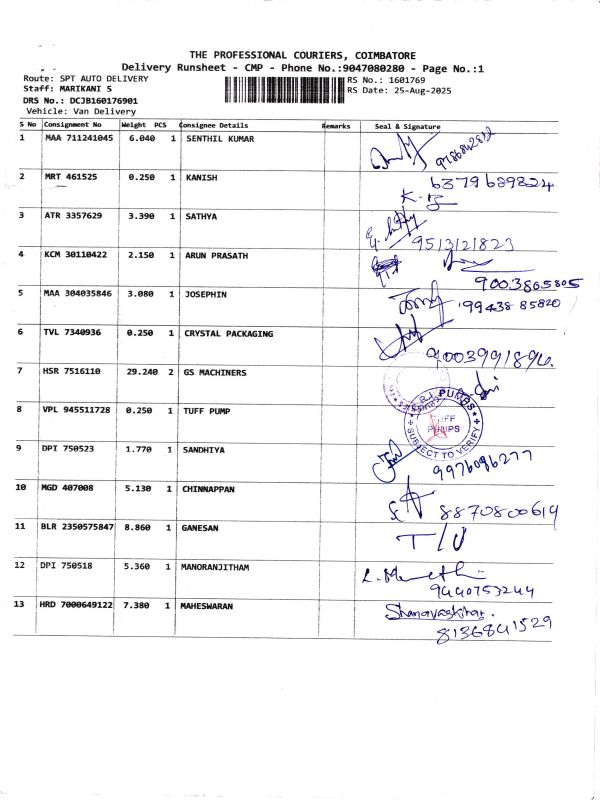 THE PROFESSIONAL COURIERS, COIMBATORE
Delivery Runsheet - CMP - Phone No.:9047080280 - Page No.:1
Route: SPT AUTO DELIVERY RS No.: 1601769
Staff: MARIKANI S RS Date: 25-Aug-2025
DRS No.: DCJB160176901
Vehicle: Van Delivery
S No Consignment No Weight PCS Consignee Details Remarks Seal & Signature
1 MAA 711241045 6.040 1 SENTHIL KUMAR
2 MRT 461525 0.250 1 KANISH 6379689824
3 ATR 3357629 3.390 1 SATHYA 9513121823
4 KCM 30110422 2.150 1 ARUN PRASATH 9003865805
5 MAA 304035846 3.080 1 JOSEPHIN 9943885820
6 TVL 7340936 0.250 1 CRYSTAL PACKAGING
7 HSR 7516110 29.240 2 GS MACHINERS
8 VPL 945511728 0.250 1 TUFF PUMP TUFF PUMPS SUBJECT TO VERIFY
9 DPI 750523 1.770 1 SANDHIYA 9976096277
10 MGD 407008 5.130 1 CHINNAPPAN 8870800619
11 BLR 2350575847 8.860 1 GANESAN T/U
12 DPI 750518 5.360 1 MANORANJITHAM 9440753244
13 HRD 7000649122 7.380 1 MAHESWARAN
8136841529